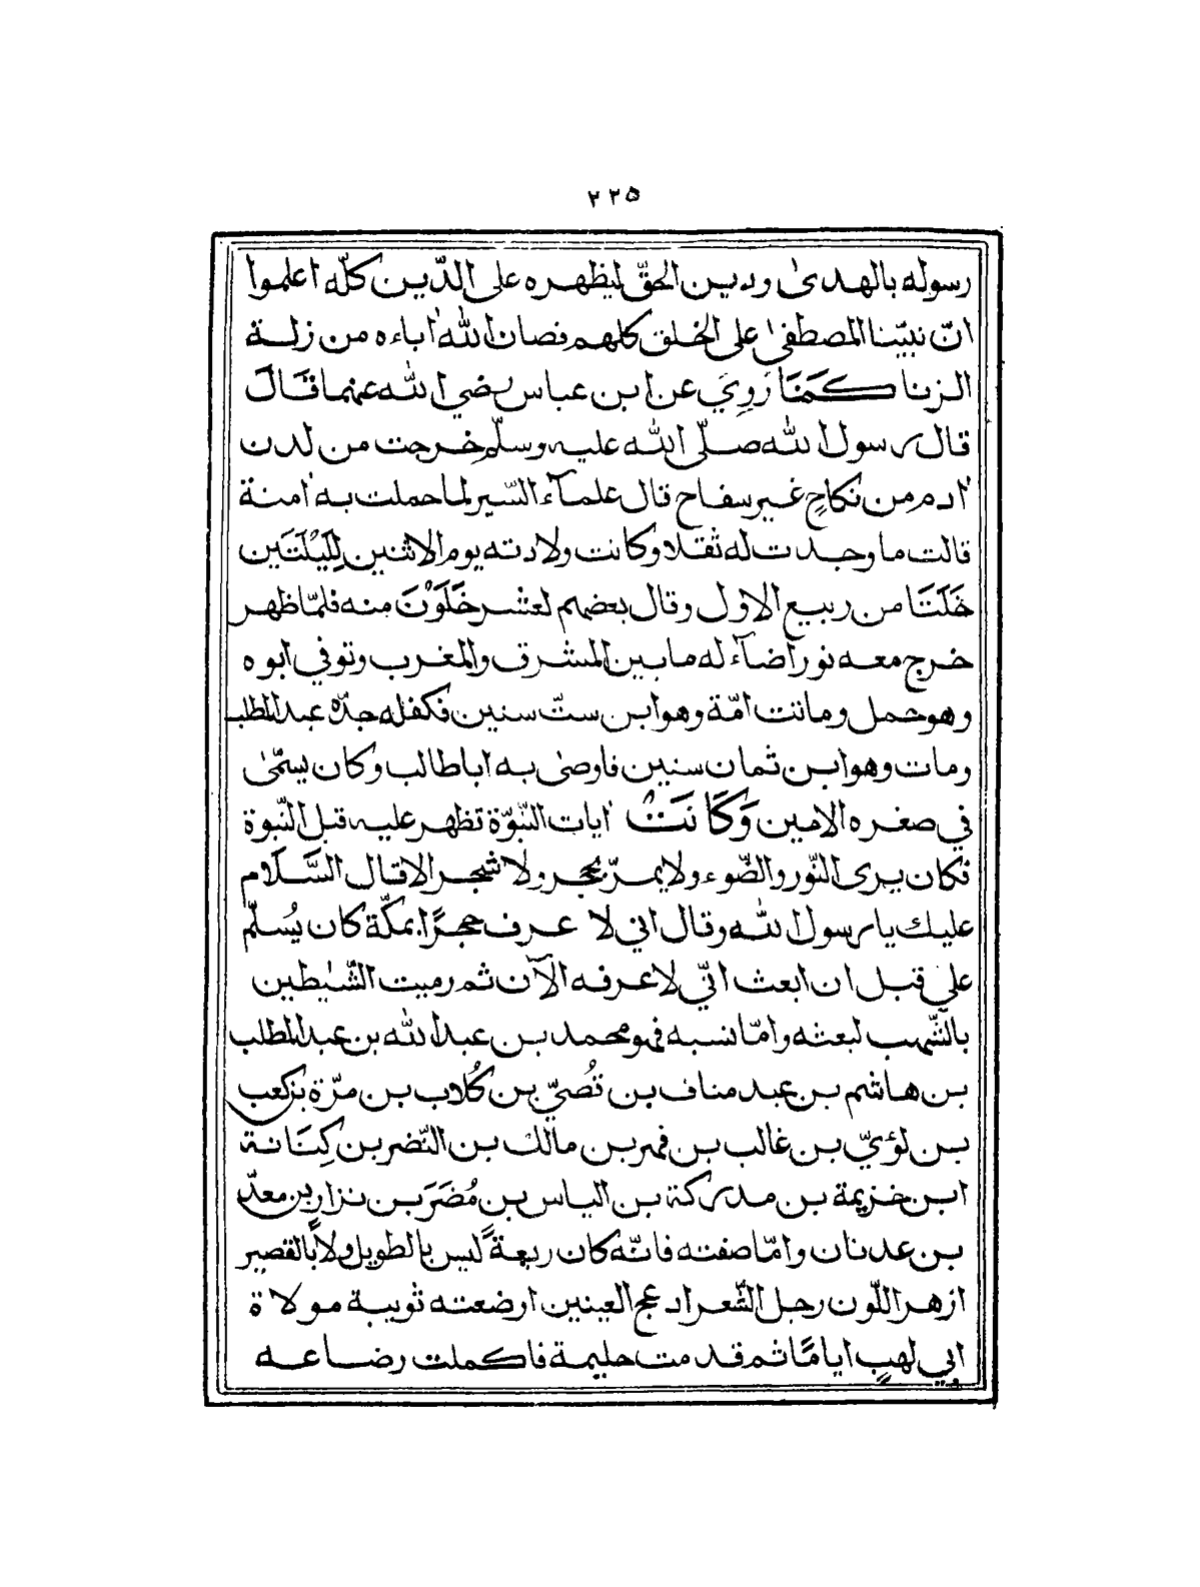 ٢٢٥
رسوله بالهدىٰ ودين الحقّ ليظهره على الدّين كلّه اعلموا
انّ نبيّنا المصطفىٰ على الخلق كلهم فصان الله اٰباءه من زلة
الزنا كَمَا رَوِيَ عن ابن عباس رضي الله عنهما قَالَ
قال رسول الله صلّى الله عليه وسلّم خرجت من لدن
اٰدم من نكاحٍ غير سفاح قال علمآء السّير لما حملت به اٰمنة
قالت ما وجدت له ثقلا وكانت ولادته يوم الاثنين لِلَيْلَتَين
خَلَتَا من ربيع الاول وقال بعضهم لعشر خَلَوْنَ منه فلمّا ظهر
خرج معه نور اضآء له ما بين المشرق والمغرب وتوفي ابوه
وهو حمل وماتت امّة وهو ابن ستّ سنين فكفله جدّه عبد المطلب
ومات وهو ابن ثمان سنين فاوصى به ابا طالب وكان يسمّىٰ
في صغره الامين وَكَانَتْ اٰيات النّبوّة تظهر عليه قبل النّبوة
فكان يرى النّور والضّوء ولا يمرّ بحجر ولا شجر الا قال السَّلَام
عليك يا رسول الله وقال اني لا عرف حجرًا بمكّة كان يُسلّم
علي قبل ان ابعث انّي لاعرفه الآن ثم رميت الشّيٰطين
بالشّهب لبعثه وامّا نسبه فهو محمد بن عبد الله بن عبد المطلب
بن هاشم بن عبد مناف بن قُصيّ بن كُلاب بن مرّة بن كعب
بن لؤيّ بن غالب بن فهر بن مالك بن النّضر بن كِنَانة
ابن خزيمة بن مدركة بن الياس بن مُضَرَ بن نزار بن معدّ
بن عدنان وامّا صفته فانّه كان ربعةً ليس بالطويل ولا بالقصير
ازهر اللّون رجل الشّعر ادعج العينين ارضعته ثويبة مولاة
ابي لهبٍ ايامًا ثم قدمت حليمة فاكملت رضاعه